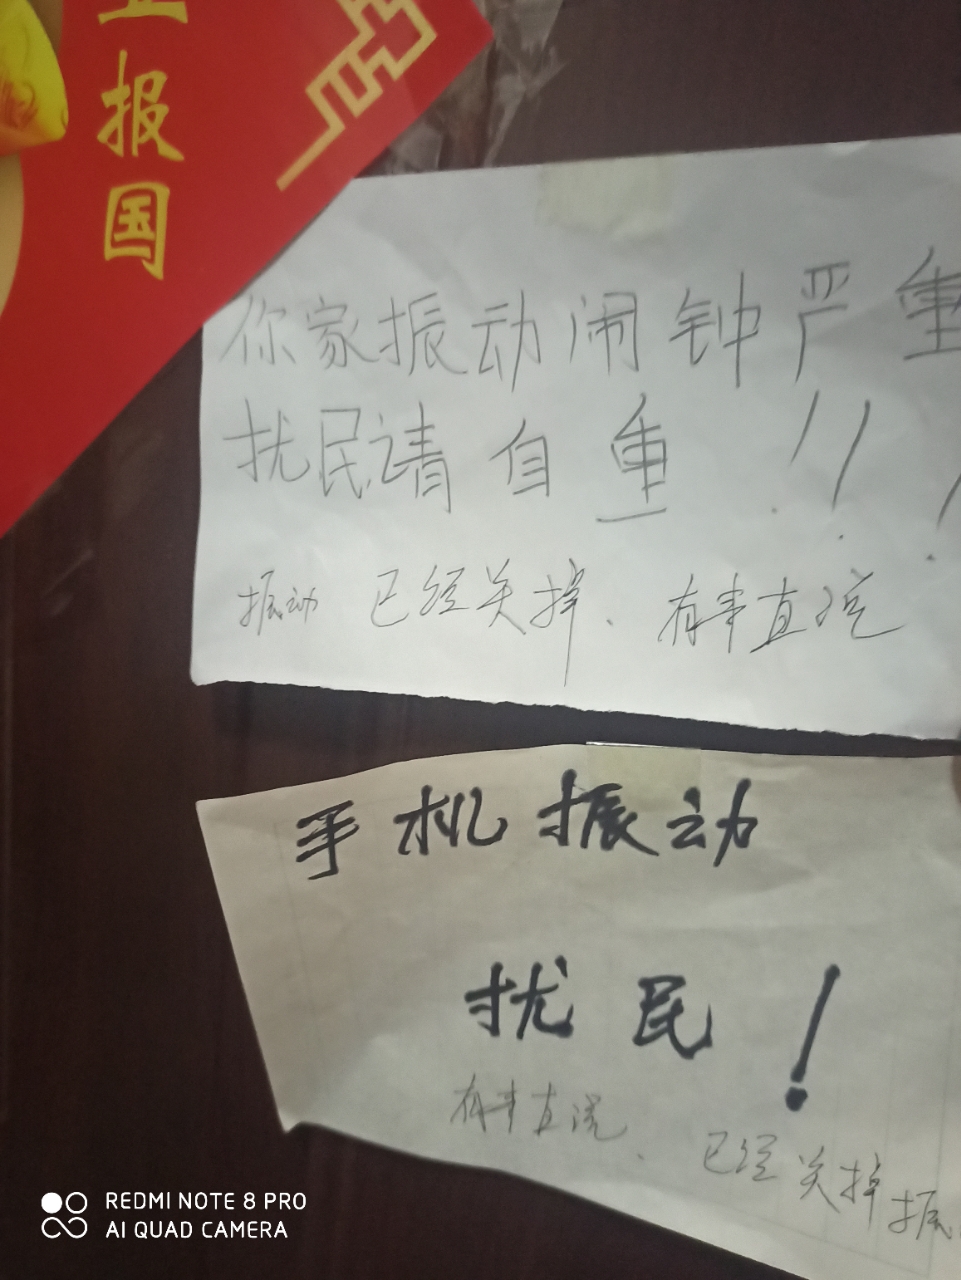 报
国
你家振动闹钟严重
扰民请自重!!!
振动 已经关掉、有事直说
手机振动
扰民!
有事直说. 已经关掉振
REDMI NOTE 8 PRO
AI QUAD CAMERA